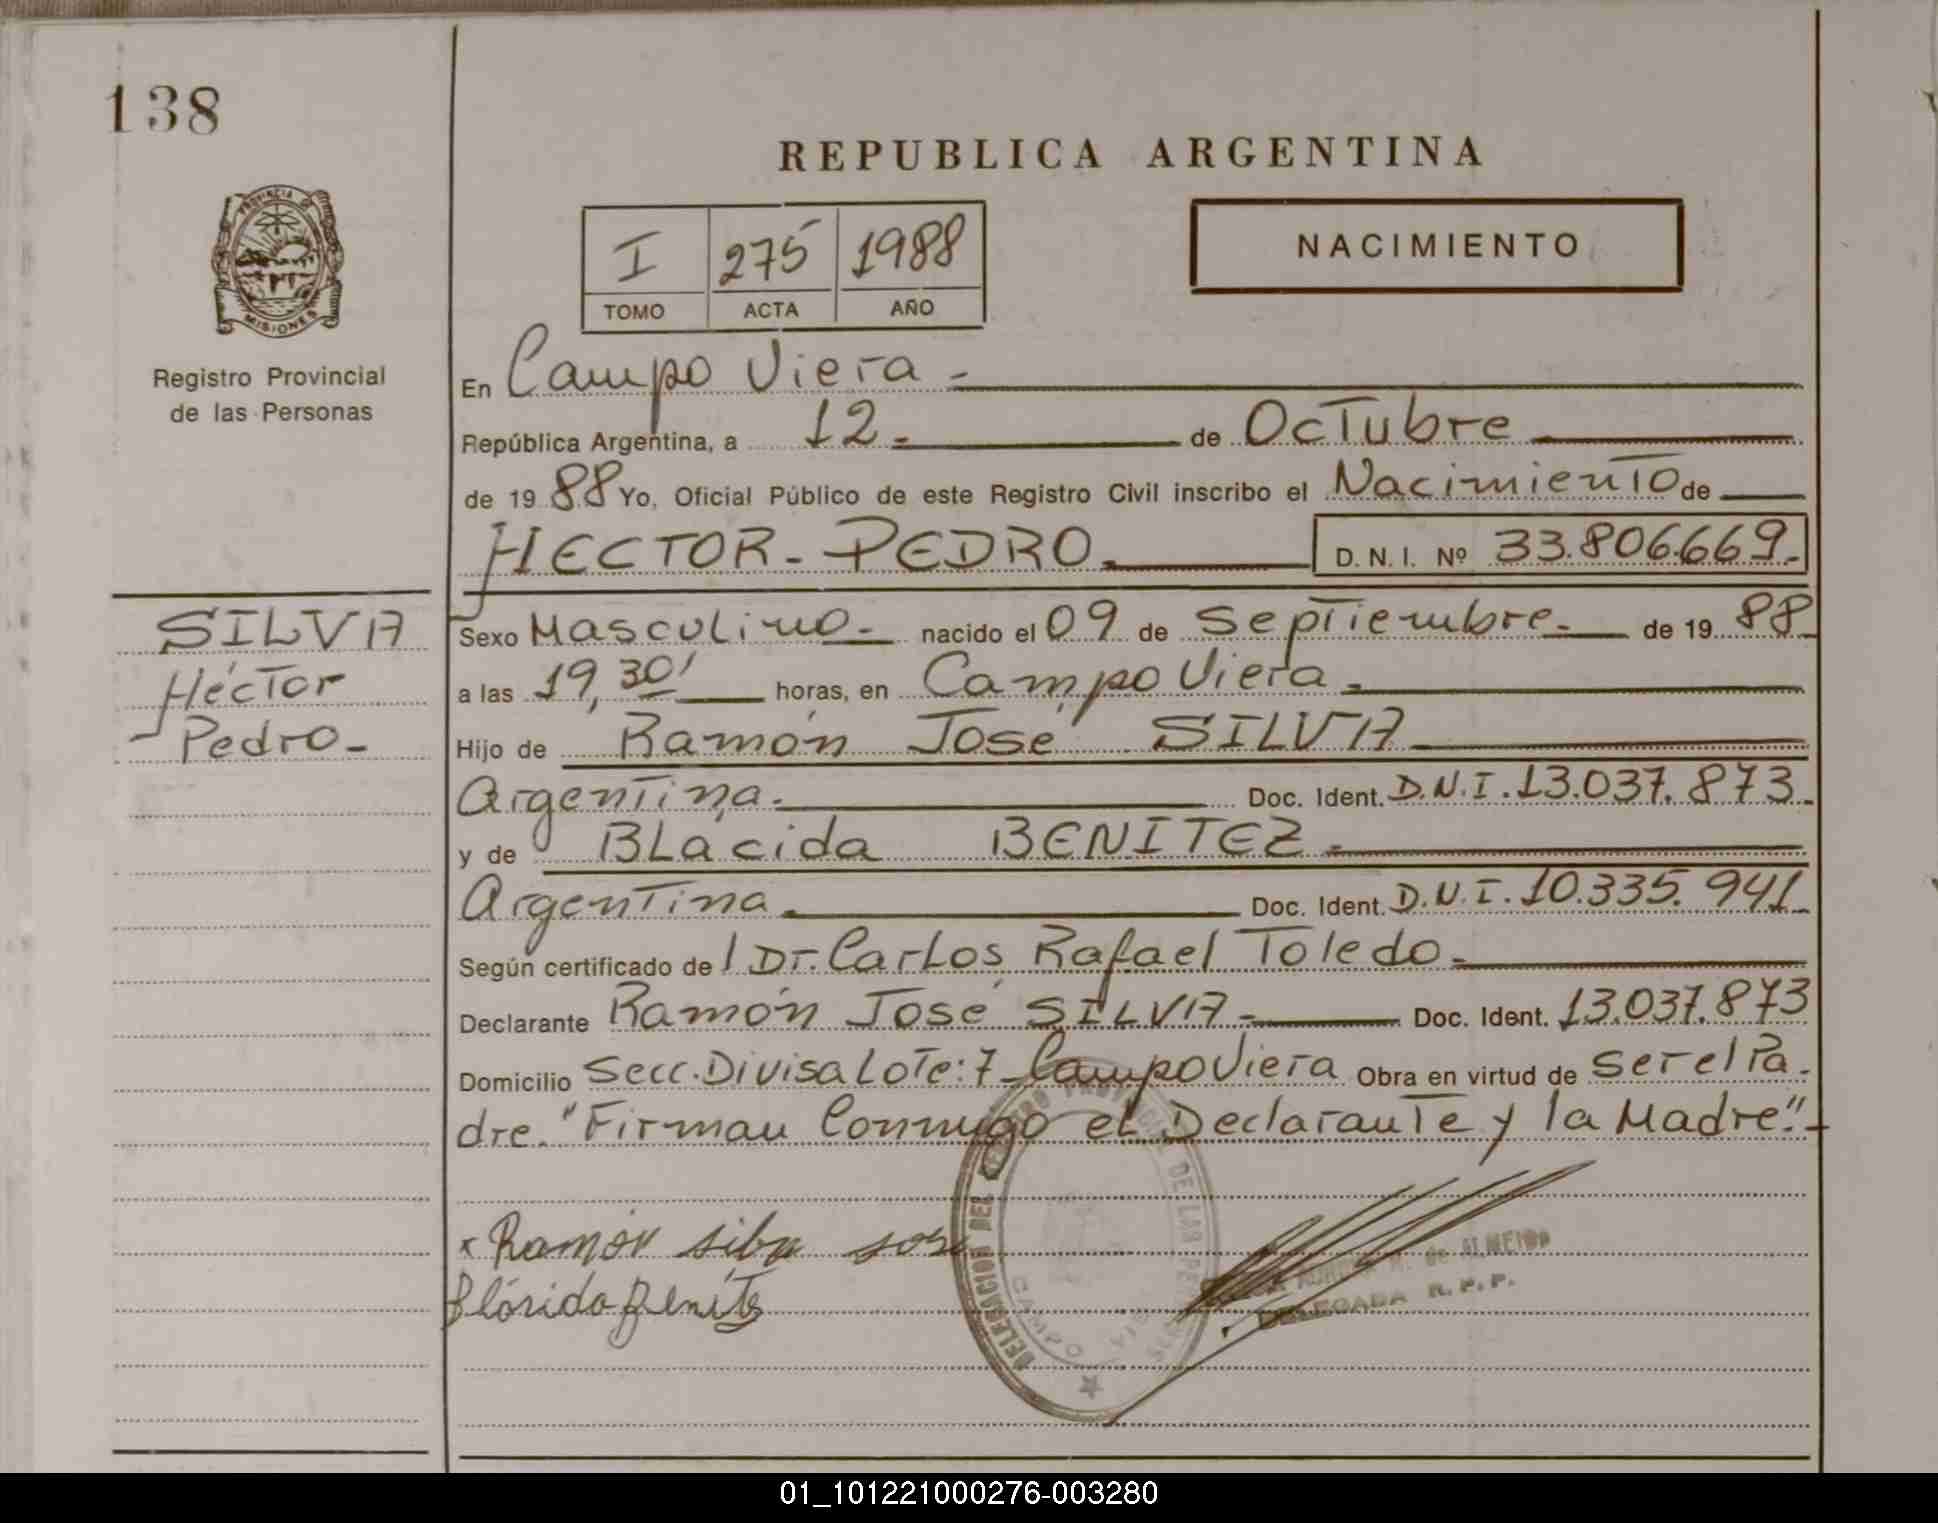 138
REPUBLICA ARGENTINA
PROVINCIA DE
MISIONES
Registro Provincial
de las Personas
I 275 1988
TOMO ACTA AÑO
NACIMIENTO
En Campo Viera -
República Argentina, a 12 - de Octubre
de 1988 Yo, Oficial Público de este Registro Civil inscribo el Nacimiento de
HECTOR - PEDRO. D. N. I. Nº 33.806.669.-
SILVA
Héctor
Pedro -
Sexo Masculino.- nacido el 09 de Septiembre.- de 1988
a las 19,30' horas, en Campo Viera.
Hijo de Ramón José SILVA
Argentina. Doc. Ident. D.N.I. 13.037.873.
y de BLácida BENITEZ.
Argentina. Doc. Ident. D.N.I. 10.335.941
Según certificado de l Dr. Carlos Rafael Toledo.
Declarante Ramón José SILVA - Doc. Ident. 13.037.873
Domicilio Secc. Divisa Lote: 7 - Campo Viera Obra en virtud de ser el Pa-
dre. "Firman Conmigo el Declarante y la Madre".-
DELEGACION DEL REGISTRO PROVINCIAL DE LAS PERSONAS
CAMPO VIERA
x Ramón
de ALMEIDA
DELEGADA R. P. P.
01_101221000276-003280